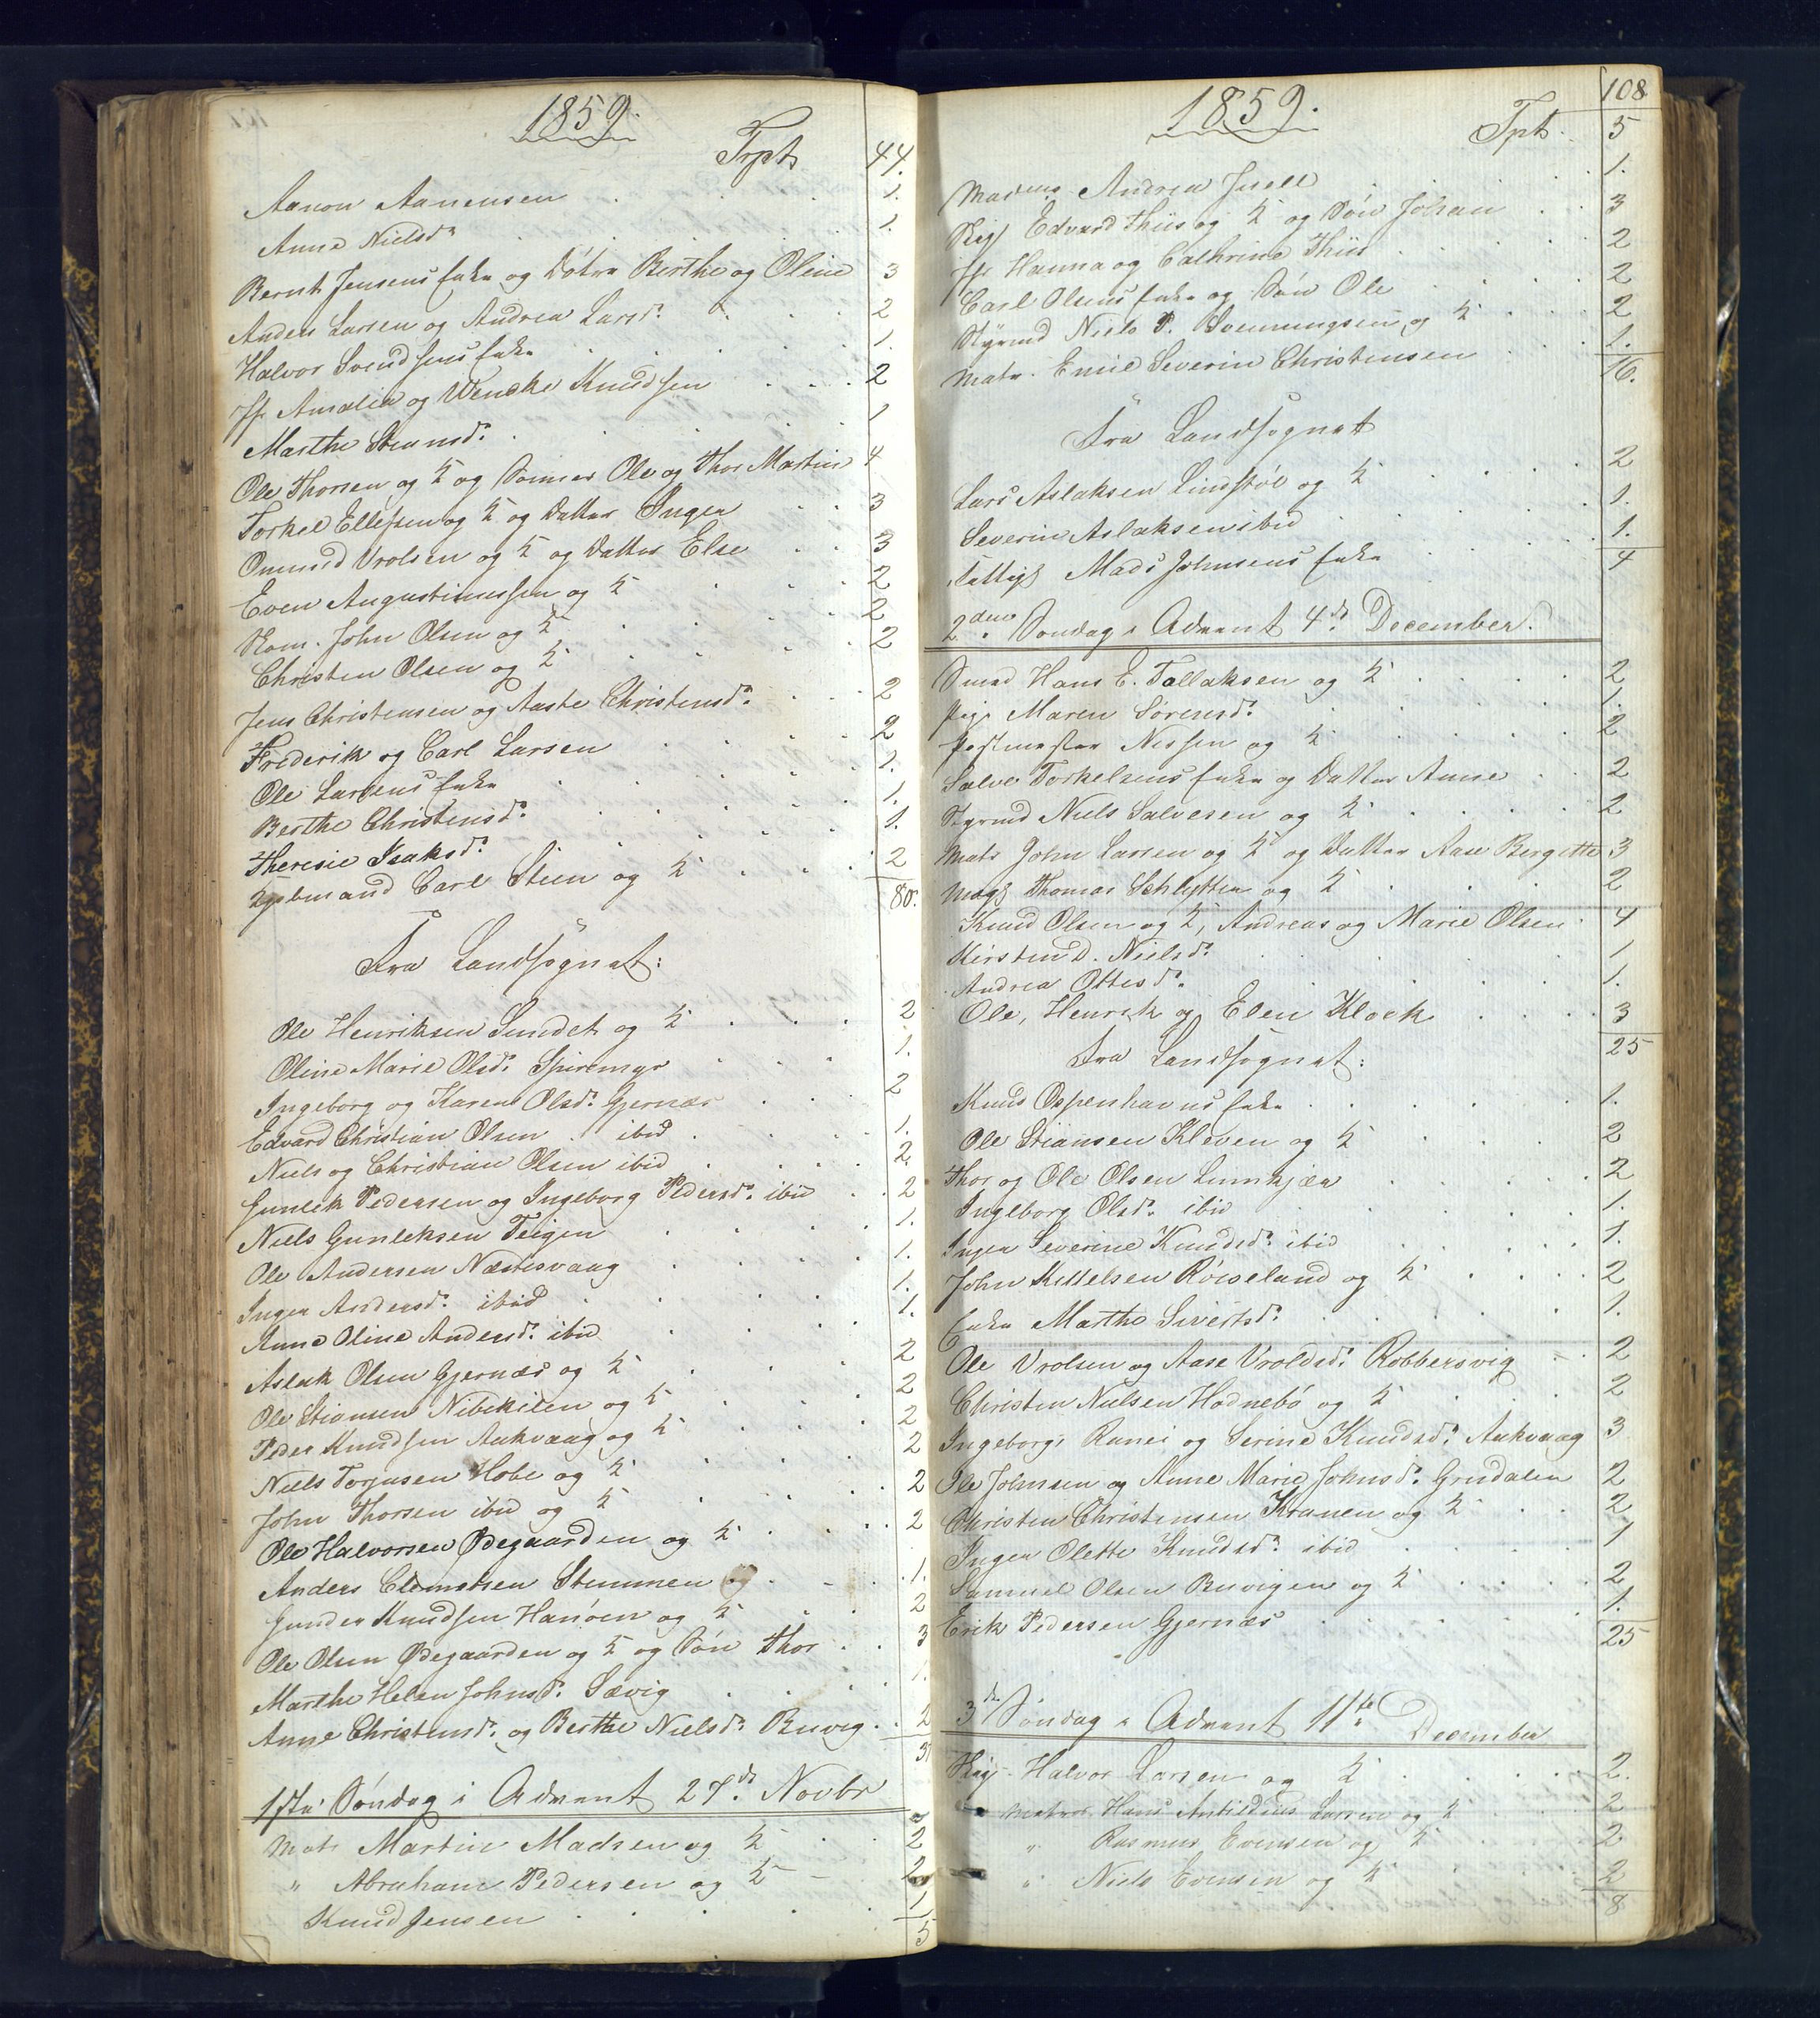 1859.
Trpt 44.
Aanon Aanensen 1.
Anne Nielsdr 1.
Bernt Jensens Enke og Døtre Berthe og Oline 3
Anders Larsen og Andrea Larsd: 2
Halvor Svendsens Enke 1.
Jfr Amalia og Wencke Knudsen 2
Marthe Stiansd: 1
Ole Thorsen og K og Sønner Ole og Thor Martin 4
Torkel Ellefsen og K og Datter Inger 3
Onund Vrolsen og K og Datter Else 3
Even Augustinussen og K 2
Kom. John Olsen og K 2
Christen Olsen og K 2
Jens Christensen og Aaste Christensd: 2
Frederik og Carl Larsen 2
Ole Larsens Enke 1.
Berthe Christensd: 1.
Theresie Isaksd: 1.
Kjøbmand Carl Steen og K 2
80.
Fra Landsognet:
Ole Henriksen Sundet og K 2
Oline Marie Olsd: Spiremyr 1.
Ingeborg og Karen Olsd: Gjernæs 2
Edvard Christian Olsen ibid 1.
Niels og Christian Olsen ibid 2
Gunlek Pedersen og Ingeborg Pedersd: ibid 2
Niels Gunleksen Teigen 1.
Ole Andersen Næstesvaag 1.
Inger Andersd: ibid 1.
Anne Oline Andersd: ibid 1.
Aslak Olsen Gjernæs og K 2
Ole Stiansen Nibekilen og K 2
Peder Knudsen Aakvaag og K 2
Niels Torjusen Hobe og K 2
John Thorsen ibid og K 2
Ole Halvorsen Ødegaarden og K 2
Anders Clemetsen Stemmen og 1.
Gunder Knudsen Hanøen og K 2
Ole Olsen Ødegaarden og K og Søn Thor 3
Marthe Helen Johnsd: Sævig 1.
Anne Christensd: og Berthe Nielsd: Buvig 2
1ste Søndag i Advent 27de Novbr
Matr Martin Madsen og K 2
" Abraham Pedersen og K 2
Knud Jensen 1
5
108
1859.
Tpt. 5
Madme Andrea Juell 1.
Edvard Thiis og K og Søn Johan 3
Jfr Hanna og Cathrine Thiis 2
Carl Olsens Enke og Søn Ole 2
Styrmd Niels P. Svenningsen og K 2
Matr. Emil Severin Christensen 1.
16.
Fra Landsognet
Lars Aslaksen Lindstøl og K 2
Severin Aslaksen ibid 1.
Fattigl Mads Johnsens Enke 1.
4
2den Søndag i Advent 4de December.
Smed Hans E. Tallaksen og K 2
Pige Maren Sørensd: 1.
Postmester Nissen og K 2
Salve Torkelsens Enke og Datter Anne 2
Styrmd Niels Salvesen og K 2
Matr John Larsen og K og Datter Aase Bergitte 3
Thomas Schlytter og K 2
Knud Olsen og K, Andreas og Marie Olsen 4
Kirsten D. Nielsd: 1
Andrea Ottesd: 1.
Ole, Henrik og Elen Klock 3
25
Fra Landsognet:
Knud Ospenhavns Enke 1.
Ole Stiansen Kleven og K 2
Thor og Ole Olsen Lunkjær 2
Ingeborg Olsd: ibid 1.
Inger Severine Knudsd: ibid 1.
John Kittelsen Røiseland og K 2
Enke Marthe Sivertsd: 1.
Ole Vrolsen og Aase Vroldsd: Robbersvig 2
Christen Nielsen Hødnebø og K 2
Ingeborg, Ranei og Serine Knudsd: Aakvaag 3
Ole Johnsen og Anne Marie Johnsd: Grudalen 2
Christen Christensen Kranen og K 2
Inger Olette Knudsd: ibid 1
Samuel Olsen Buvigen og K 2
Erik Pedersen Gjernæs 1.
25
3de Søndag i Advent 11te December
Halvor Larsen og K 2.
Matros Hans Antildius Larsen og K 2
" Rasmus Evensen og K 2
" Niels Evensen og K 2
8